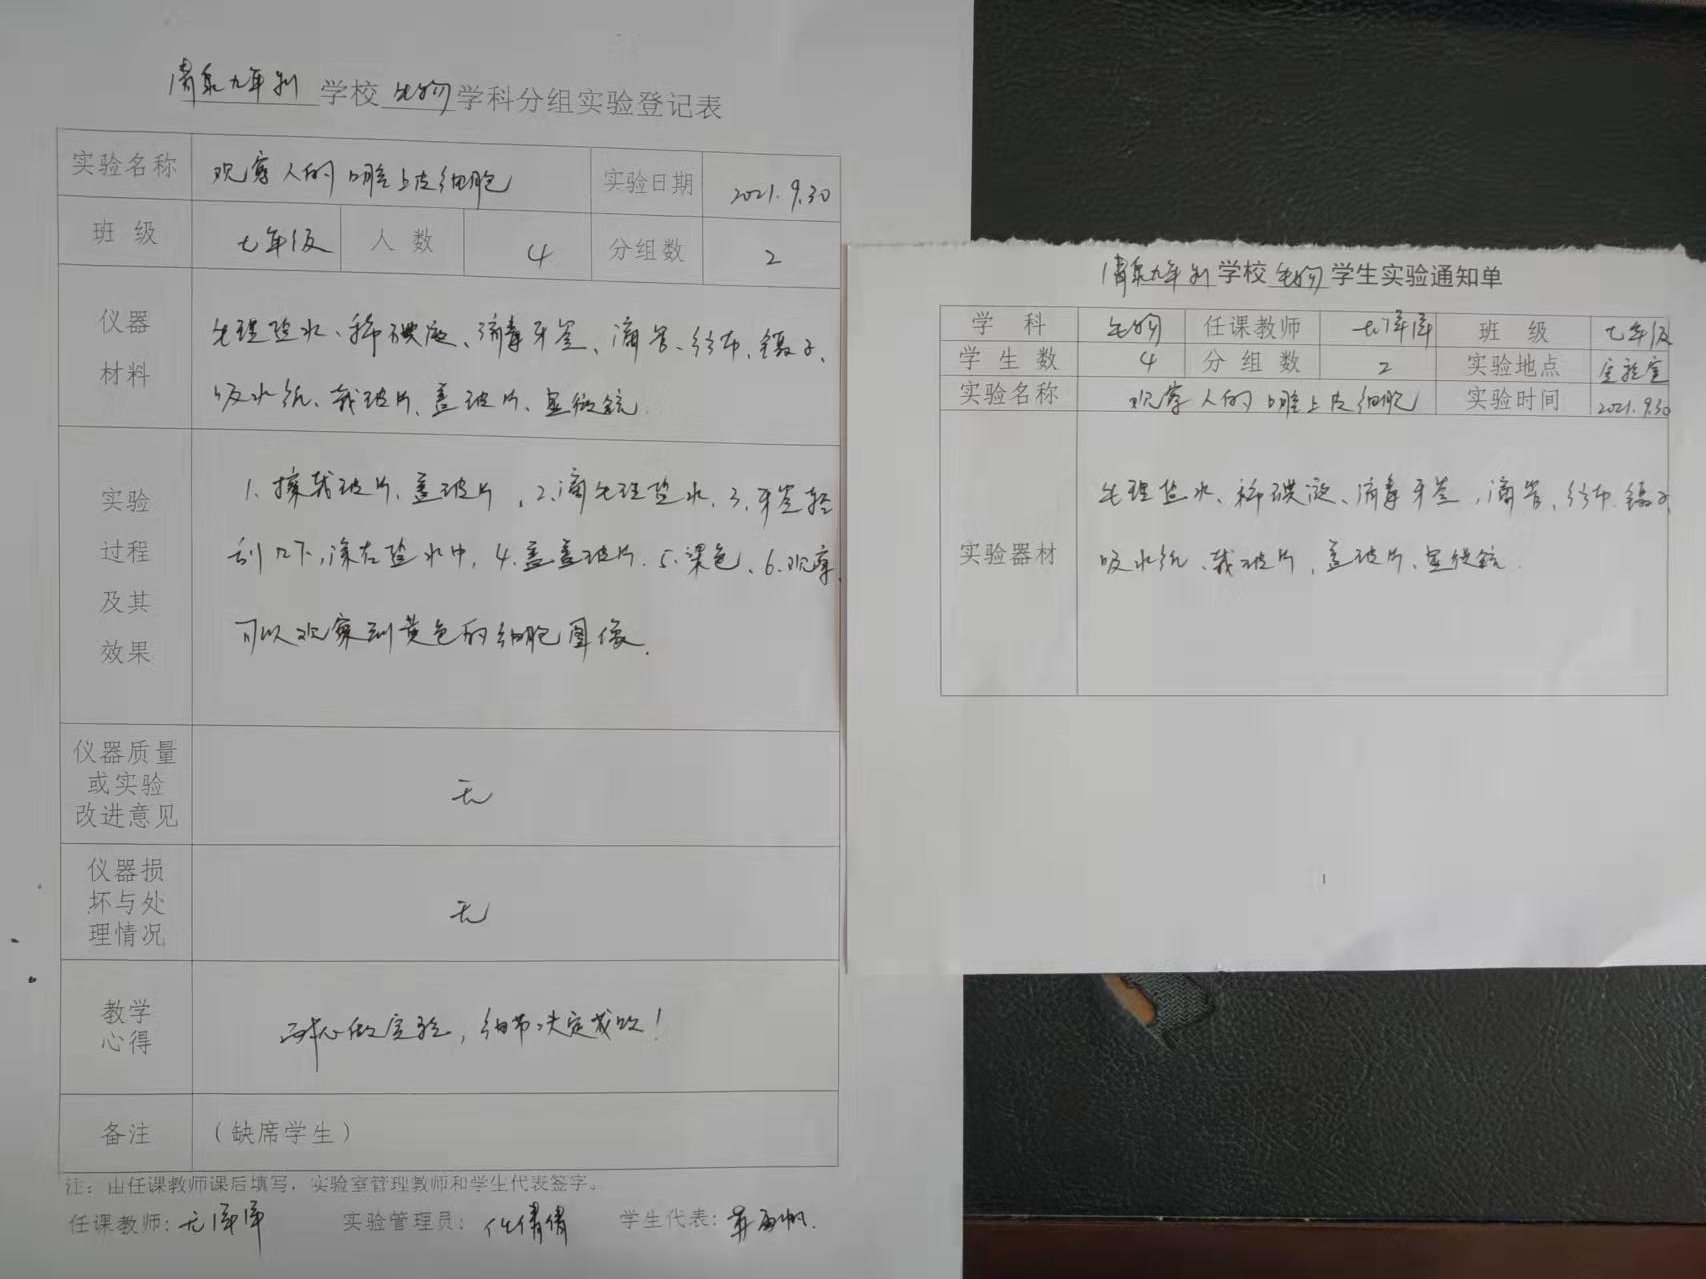 清泉九年制学校生物学科分组实验登记表
实验名称 观察人的口腔上皮细胞 实验日期 2021.9.30
班级 七年级 人数 4 分组数 2
仪器材料
生理盐水、稀碘液、消毒牙签、滴管、纱布、镊子、
吸水纸、载玻片、盖玻片、显微镜
实验过程及其效果
1、擦载玻片、盖玻片、2、滴生理盐水、3、牙签轻
刮几下,涂在盐水中,4、盖盖玻片、5、染色、6、观察,
可以观察到黄色的细胞图像.
仪器质量或实验改进意见 无
仪器损坏与处理情况 无
教学心得 耐心做实验,细节决定成败!
备注 (缺席学生)
注:由任课教师课后填写,实验室管理教师和学生代表签字。
任课教师: 实验管理员: 学生代表:
清泉九年制学校生物学生实验通知单
学科 生物 任课教师 班级 七年级
学生数 4 分组数 2 实验地点 实验室
实验名称 观察人的口腔上皮细胞 实验时间 2021.9.30
实验器材
生理盐水、稀碘液、消毒牙签,滴管、纱布、镊子
吸水纸、载玻片,盖玻片、显微镜.
1